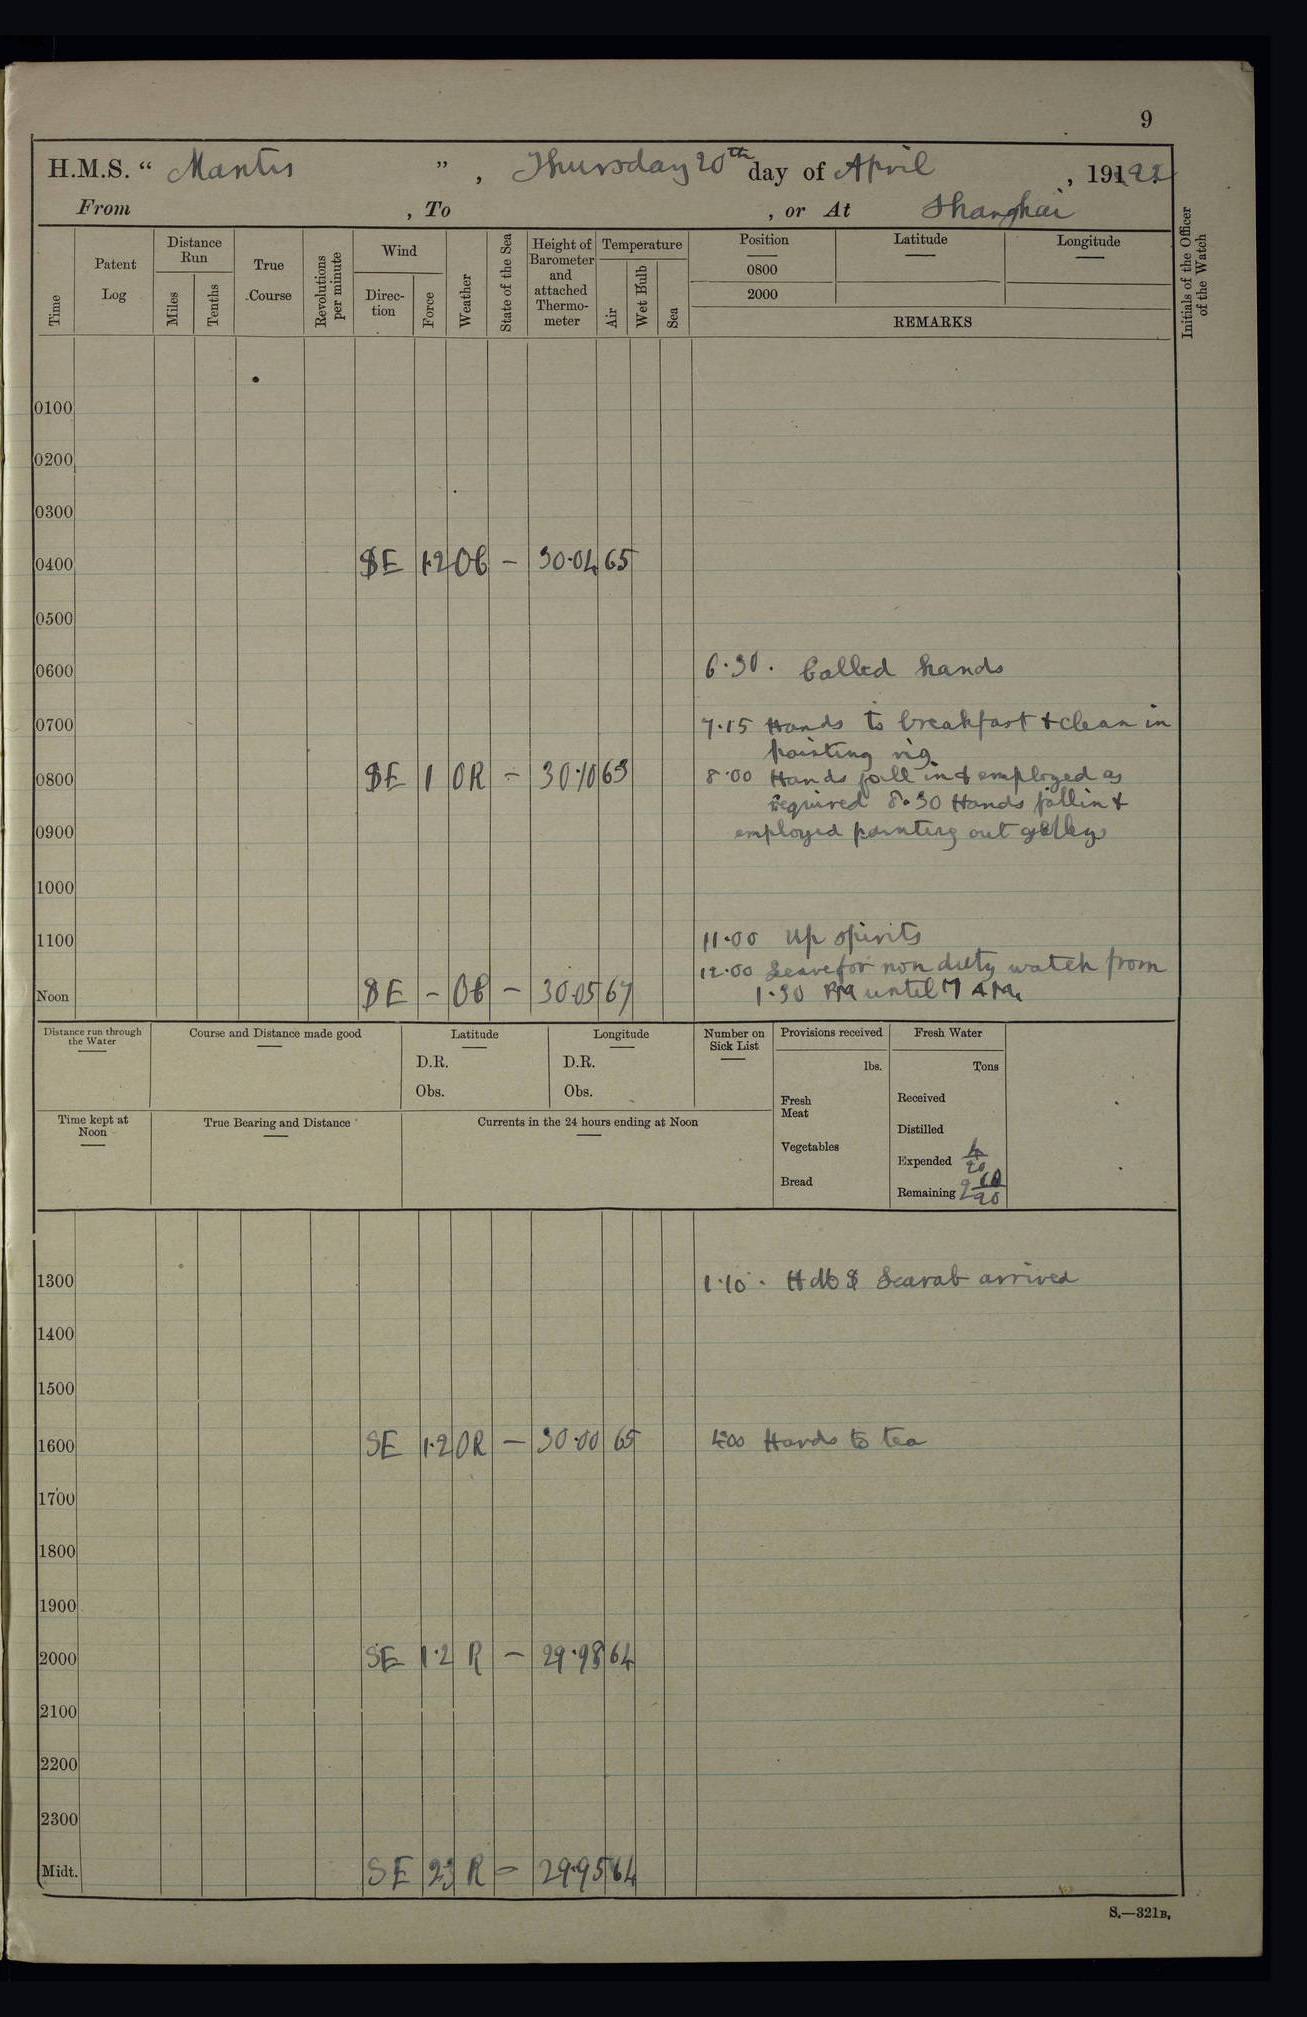 9
H.M.S. “ Mantis ” , Thursday 20th day of April , 191922
From , To , or At Shanghai
Time
Patent Log
Distance Run
Miles
Tenths
True Course
Revolutions per minute
Wind
Direction
Force
Weather
State of the Sea
Height of Barometer and attached Thermometer
Temperature
Air
Wet Bulb
Sea
Position
0800
2000
Latitude
Longitude
REMARKS
Initials of the Officer of the Watch
0100
0200
0300
0400 SE 1·2 OC – 30·04 65
0500
0600 6·30. Called hands
0700 7·15 Hands to breakfast & clean in
painting rig.
0800 SE 1 OR – 30·10 63 8·00 Hands fall in & employed as
required 8·30 Hands fall in &
0900 employed painting out galley
1000
1100 11·00 Up spirits
12·00 Leave for non duty watch from
Noon SE – OC – 30·05 67 1·30 PM until 7 AM.
Distance run through the Water
Course and Distance made good
Latitude
D.R.
Obs.
Longitude
D.R.
Obs.
Number on Sick List
Provisions received
lbs.
Fresh Meat
Vegetables
Bread
Fresh Water
Tons
Received
Distilled
Expended 4/20
Remaining
Time kept at Noon
True Bearing and Distance
Currents in the 24 hours ending at Noon
1300 1·10. HMS Scarab arrived
1400
1500
1600 SE 1·2 OR – 30·00 65 4·00 Hands to tea
1700
1800
1900
2000 SE 1·2 R – 29·98 64
2100
2200
2300
Midt. SE 2·3 R – 29·95 64
S.—321B.